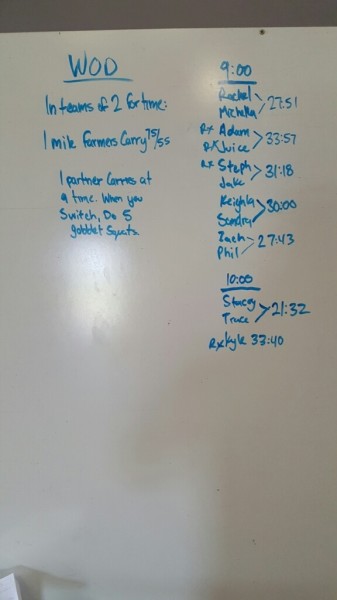 WOD
In teams of 2 For time:
1 mile Farmers Carry 75/55
1 partner Carries at
a time. When you
Switch, Do 5
gobblet Squats
9:00
Rachel
Michella
27:51
Rx Adam
Rx Juice
33:57
Rx Steph
Jake
31:18
Keighla
30:00
Zach
Phil
27:43
10:00
Stacey
Trace
21:32
Rx Kyle 33:40